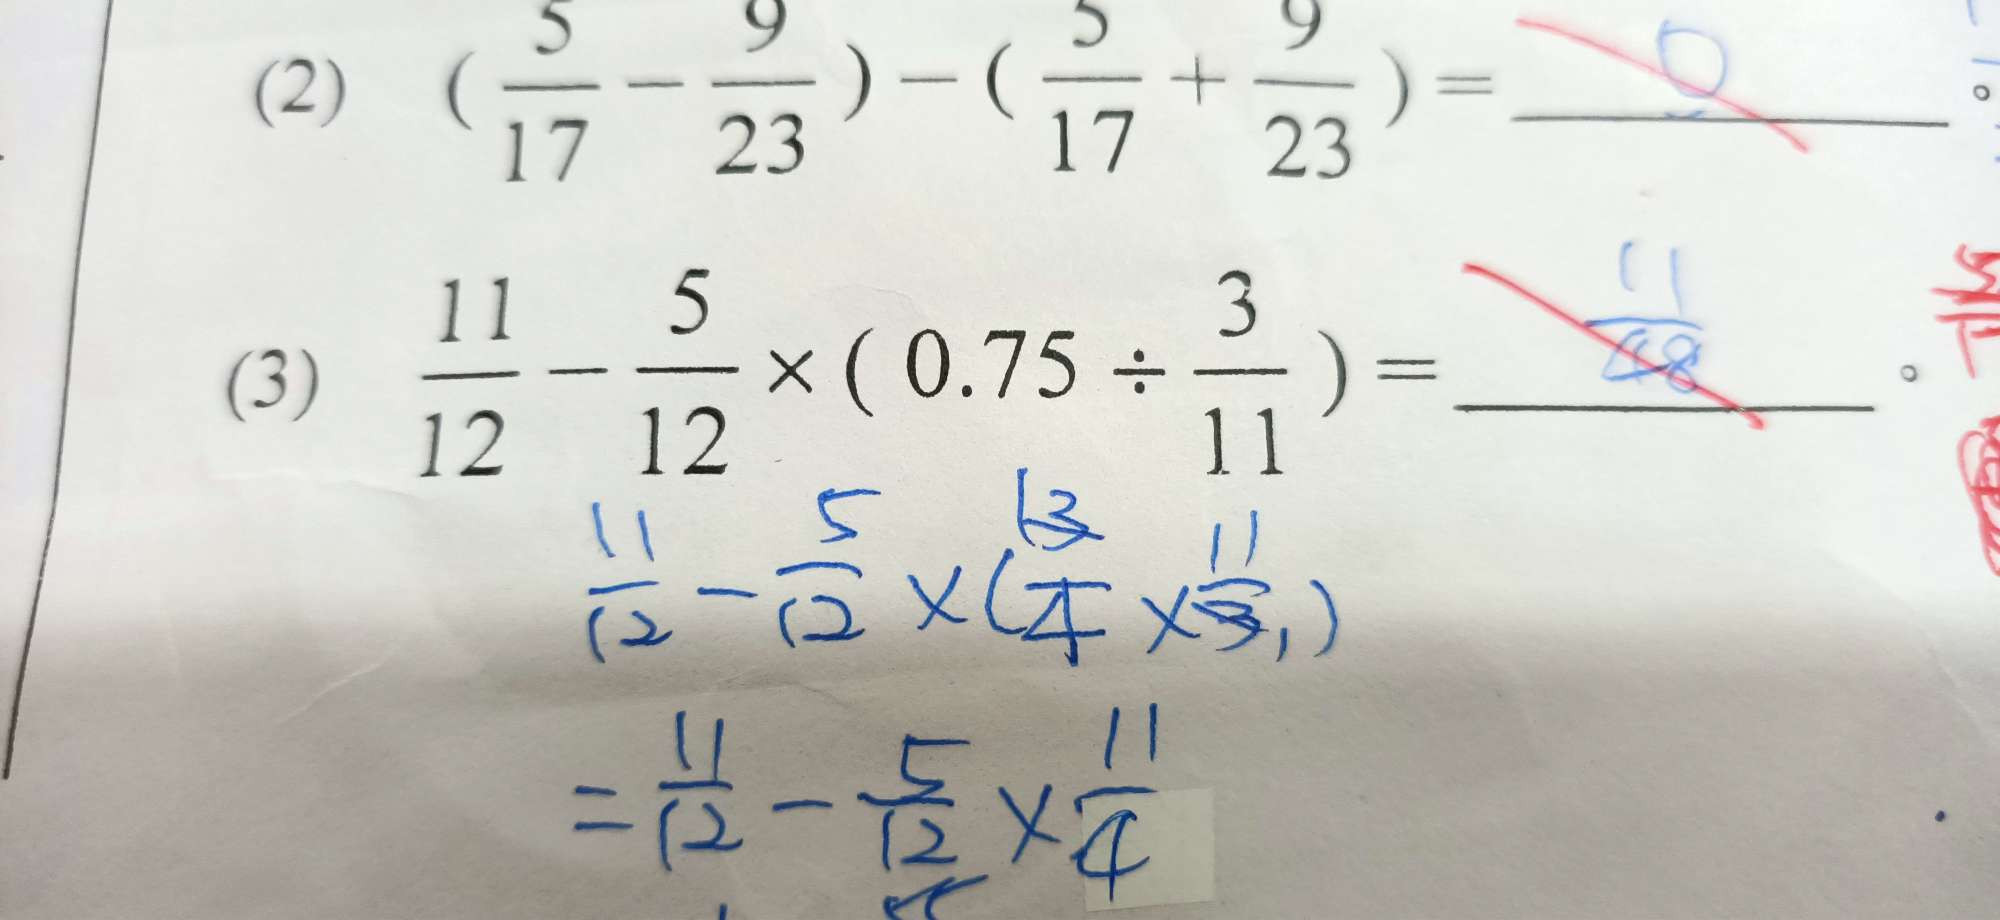 (2) (5/17 - 9/23) - (5/17 + 9/23) = 0 。
(3) 11/12 - 5/12 × (0.75 ÷ 3/11) = 11/48 。
11/12 - 5/12 × (3/4 × 11/3)
= 11/12 - 5/12 × 11/4